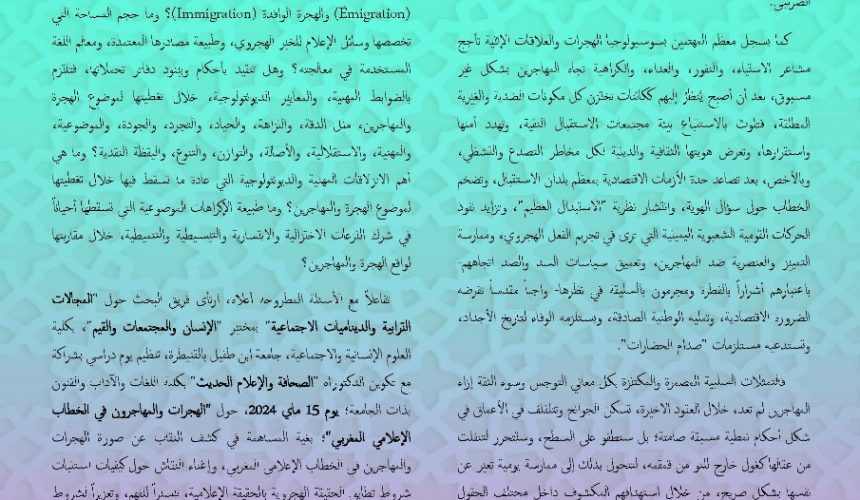 الضريبي.
كما يسجل معظم المهتمين بسوسيولوجيا الهجرات والعلاقات الإثنية تأجج
مشاعر الاستياء، والنفور، والعداء، والكراهية تجاه المهاجرين بشكل غير
مسبوق، بعد أن أصبح يُنظَرُ إليهم ككائنات تختزن كل مكونات الضدية والغيرية
المطلقة، فتلوث بالاستتباع بيئة مجتمعات الاستقبال النقية، وتهدد أمنها
واستقرارها، وتعرض هويتها الثقافية والدينية لكل مخاطر التصدع والتشظي،
وبالأخص، بعد تصاعد حدة الأزمات الاقتصادية بمعظم بلدان الاستقبال، وتضخم
الخطاب حول سؤال الهوية، وانتشار نظرية "الاستبدال العظيم"، وتزايد نفوذ
الحركات القومية الشعبوية اليمينية التي ترى في تجريم الفعل الهجروي، وممارسة
التمييز والعنصرية ضد المهاجرين، وتعميق سياسات السد والصد اتجاههم
باعتبارهم أشراراً بالفطرة ومجرمون بالسليقة في نظرها- واجباً مقدساً تفرضه
الضرورة الاقتصادية، وتمليه الوطنية الصادقة، ويستلزمه الوفاء لتاريخ الأجداد،
وتستدعيه مستلزمات "صدام الحضارات".
فالتمثلات السلبية المضمرة والمكتنزة بكل معاني التوجس وسوء الثقة إزاء
المهاجرين لم تعد، خلال العقود الأخيرة، تسكن الجوانح وتتلفلف في الأعماق في
شكل أحكام نمطية مسبقة صامتة؛ بل ستطفو على السطح، وستتحرر لتنفلت
من عقالها كغول خارج للتو من قمقمه، لتتحول بذلك إلى ممارسة يومية تعبر عن
نفسها بشكل صريح، من خلال استهدافهم المكشوف داخل مختلف الحقول
(Émigration) والهجرة الوافدة (Immigration)؟ وما حجم المساحة التي
تخصصها وسائل الإعلام للخبر الهجروي، وطبيعة مصادرها المعتمدة، ومعالم اللغة
المستخدمة في معالجته؟ وهل تتقيد بأحكام وبنود دفاتر تحملاتها، فتلتزم
بالضوابط المهنية، والمعايير الديونتولوجية، خلال تغطيتها لموضوع الهجرة
والمهاجرين، مثل الدقة، والنزاهة، والحياد، والتجرد، والجودة، والموضوعية،
والمهنية، والاستقلالية، والأصالة، والتوازن، والتنوع، واليقظة النقدية؟ وما هي
أهم الانزلاقات المهنية والديونتولوجية التي عادة ما تسقط فيها خلال تغطيتها
لموضوع الهجرة والمهاجرين؟ وما طبيعة الإكراهات الموضوعية التي تسقطها أحياناً
في شرك النزعات الاختزالية والابتسارية والتبسيطية والتنميطية، خلال مقاربتها
لواقع الهجرة والمهاجرين؟
تفاعلاً مع الأسئلة المطروحة أعلاه، ارتأى فريق البحث حول "المجالات
الترابية والديناميات الاجتماعية" بمختبر "الإنسان والمجتمعات والقيم"، بكلية
العلوم الإنسانية والاجتماعية، جامعة ابن طفيل بالقنيطرة، تنظيم يوم دراسي بشراكة
مع تكوين الدكتوراه "الصحافة والإعلام الحديث" بكلية اللغات والآداب والفنون
بذات الجامعة؛ يوم 15 ماي 2024، حول "الهجرات والمهاجرون في الخطاب
الإعلامي المغربي"؛ بغية المساهمة في كشف النقاب عن صورة الهجرات
والمهاجرين في الخطاب الإعلامي المغربي، وإغناء النقاش حول كيفيات استتباب
شروط تطابق الحقيقة الهجروية بالحقيقة الإعلامية، تيسيراً للفهم، وتعزيزاً لشروط